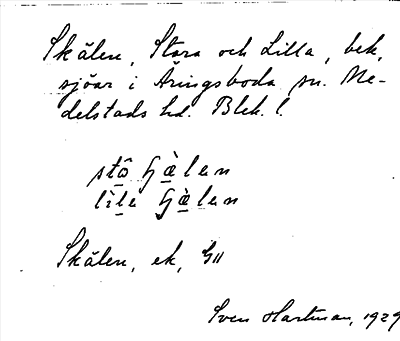 Skälen, Stora och Lilla, bek,
sjöar i Åringsboda sn. Me-
delstads hd. Blek. l.
stô
lìle
Skälen, ek, GII
Sven Hartman, 1929